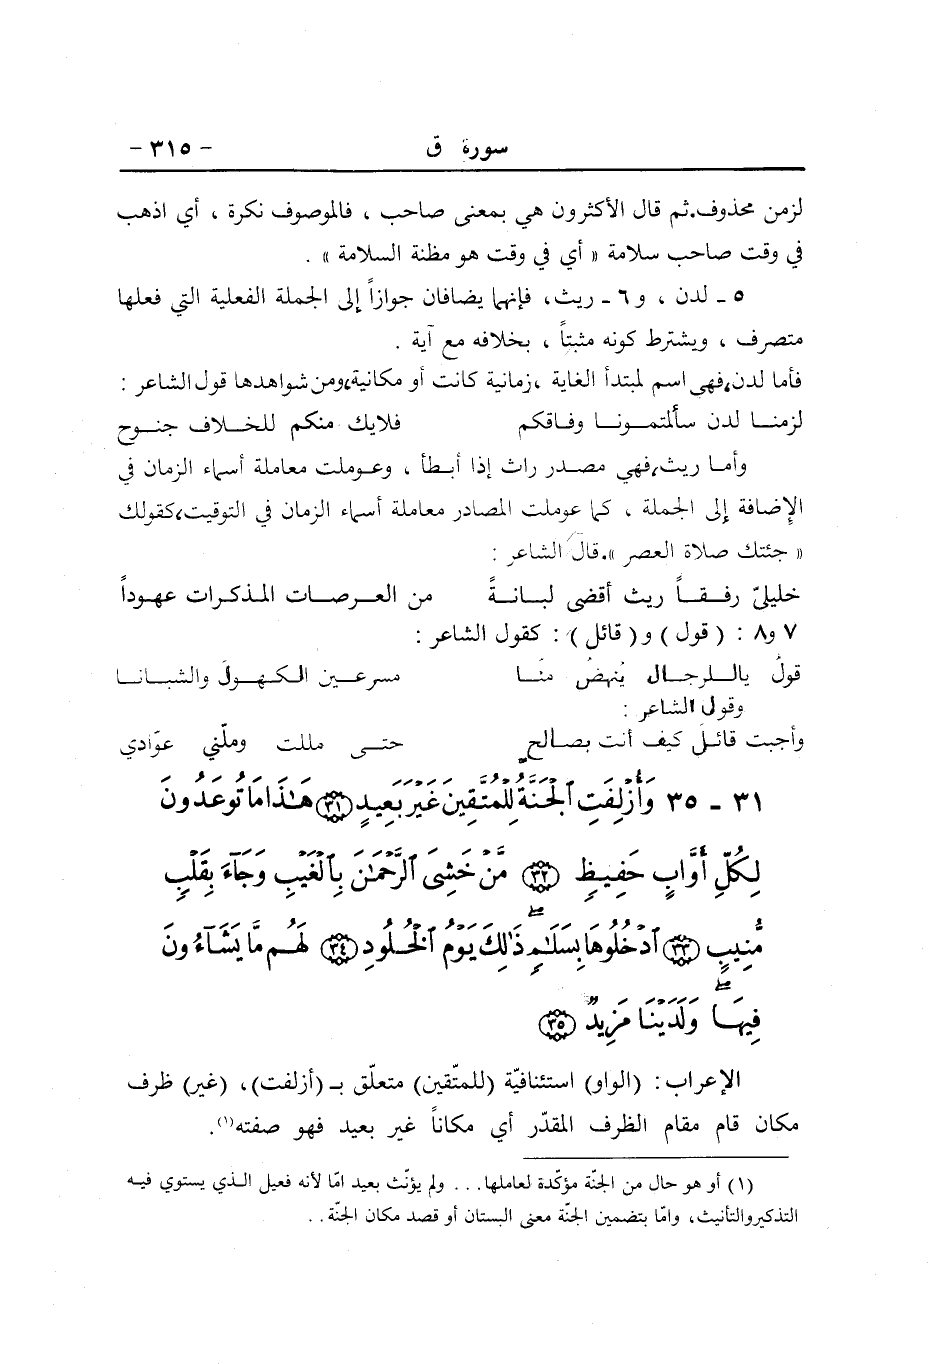 سورة ق - ٣١٥ -
لزمن محذوف. ثم قال الأكثرون هي بمعنى صاحب ، فالموصوف نكرة ، أي اذهب
في وقت صاحب سلامة « أي في وقت هو مظنة السلامة » .
٥ ـ لدن ، و٦ ـ ريث، فإنهما يضافان جوازاً إلى الجملة الفعلية التي فعلها
متصرف ، ويشترط كونه مثبتاً ، بخلافه مع آية .
فأما لدن، فهي اسم لمبتدأ الغاية ، زمانية كانت أو مكانية، ومن شواهدها قول الشاعر :
لزمنــا لدن سألتمونــا وفــاقكم فلايك منكم للخــلاف جنــوح
وأمـا ريث، فهي مصدر راث إذا أبطأ ، وعوملت معاملة أسماء الزمان في
الإضافة إلى الجملة ، كما عوملت المصادر معاملة أسماء الزمان في التوقيت، كقولك
« جئتك صلاة العصر ». قال الشاعر :
خليليّ رفــقــاً ريث أقضي لبـانـةً من العـرصــات المذكـرات عهـوداً
٧ و٨ : ( قول ) و( قائل ) : كقول الشاعر :
قولُ يالــلرجــال يُنهضُ منّــا مسرعـين الـكهـول والشبـانــا
وقول الشاعر :
وأجبت قائـل كيف أنت بصـالحٍ حتــى مللت وملّني عوّادي
٣١ ـ ٣٥ وَأُزْلِفَتِ ٱلْجَنَّةُ لِلْمُتَّقِينَ غَيْرَ بَعِيدٍ ﴿٣١﴾ هَٰذَا مَا تُوعَدُونَ
لِكُلِّ أَوَّابٍ حَفِيظٍ ﴿٣٢﴾ مَّنْ خَشِيَ ٱلرَّحْمَٰنَ بِٱلْغَيْبِ وَجَآءَ بِقَلْبٍ
مُّنِيبٍ ﴿٣٣﴾ ٱدْخُلُوهَا بِسَلَٰمٍ ۖ ذَٰلِكَ يَوْمُ ٱلْخُلُودِ ﴿٣٤﴾ لَهُم مَّا يَشَآءُونَ
فِيهَا ۖ وَلَدَيْنَا مَزِيدٌ ﴿٣٥﴾
الإعراب : (الواو) استئنافيّة (للمتّقين) متعلّق بـ (أزلفت)، (غير) ظرف
مكان قام مقام الظرف المقدّر أي مكاناً غير بعيد فهو صفته(١).
(١) أو هو حال من الجنّة مؤكّدة لعاملها . . . ولم يؤنّث بعيد امّا لأنه فعيل الـذي يستوي فيـه
التذكير والتأنيث، وامّا بتضمين الجنّة معنى البستان أو قصد مكان الجنّة . .